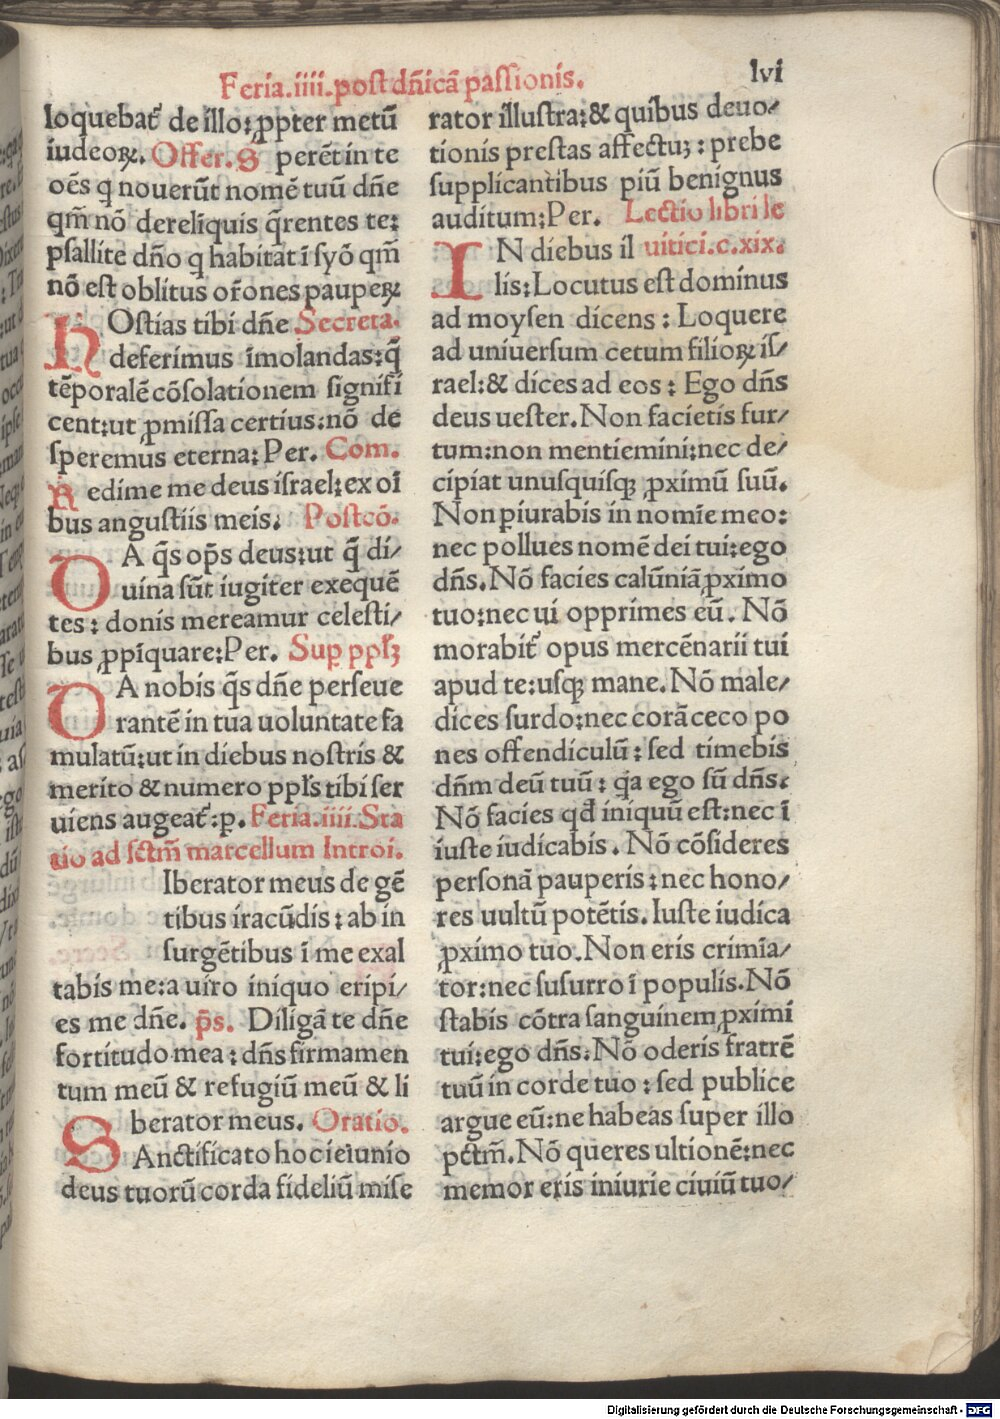 Feria.iiii.post dñicã passionis.
lvi
loquebat᷑ de illo: ꝓpter metũ
iudeoꝝ. Offer. S perẽt in te
oẽs q nouerũt nomẽ tuũ dñe
qm̃ nõ dereliquis q̃rentes te:
psallite dño q habitat ĩ syõ qm̃
nõ est oblitus or̃ones paupeꝝ
HOstias tibi dñe Secreta.
deferimus ĩmolandas: q̃
tẽporalẽ cõsolationem signifi
cent: ut ꝓmissa certius: nõ de
speremus eterna: Per. Com.
Redime me deus israel: ex oĩ
bus angustiis meis. Postcõ.
DA q̃s op̃s deus: ut q̃ di/
uina sũt iugiter exequẽ
tes: donis mereamur celesti/
bus ꝓpĩquare: Per. Suꝑ ppl̃ꝫ
DA nobis q̃s dñe perseue
rantẽ in tua uoluntate fa
mulatũ: ut in diebus nostris &
merito & numero ppl̃s tibi ser
uiens augeat᷑: ꝑ. Feria.iiii. Sta
tio ad sctm̃ marcellum Introi.
Iberator meus de gẽ
tibus iracũdis: ab in
surgẽtibus ĩ me exal
tabis me: a uiro iniquo eripi/
es me dñe. p̃s. Diligã te dñe
fortitudo mea: dñs firmamen
tum meũ & refugiũ meũ & li
berator meus. Oratio.
SAnctificato hoc ieiunio
deus tuorũ corda fideliũ mise
rator illustra: & quibus deuo/
tionis prestas affectuꝫ: prebe
supplicantibus piũ benignus
auditum: Per. Lectio libri le
IN diebus il uitici.c.xix.
lis: Locutus est dominus
ad moysen dicens: Loquere
ad uniuersum cetum filioꝝ is/
rael: & dices ad eos: Ego dñs
deus uester. Non facietis fur/
tum: non mentiemini: nec de/
cipiat unusquisqꝫ ꝓximũ suũ.
Non ꝑiurabis in nomĩe meo:
nec pollues nomẽ dei tui: ego
dñs. Nõ facies calũniã ꝓximo
tuo: nec ui opprimes eũ. Nõ
morabit᷑ opus mercẽnarii tui
apud te: usqꝫ mane. Nõ male/
dices surdo: nec corã ceco po
nes offendiculũ: sed timebis
dñm deũ tuũ: qa ego sũ dñs.
Nõ facies qđ iniquũ est: nec ĩ
iuste iudicabis. Nõ cõsideres
personã pauperis: nec hono/
res uultũ potẽtis. Iuste iudica
ꝓximo tuo. Non eris crimĩa/
tor: nec susurro ĩ populis. Nõ
stabis cõtra sanguinem ꝓximi
tui: ego dñs. Nõ oderis fratrẽ
tuũ in corde tuo: sed publice
argue eũ: ne habeas super illo
pctm̃. Nõ queres ultionẽ: nec
memor eris iniurie ciuiũ tuo/
Digitalisierung gefördert durch die Deutsche Forschungsgemeinschaft - DFG